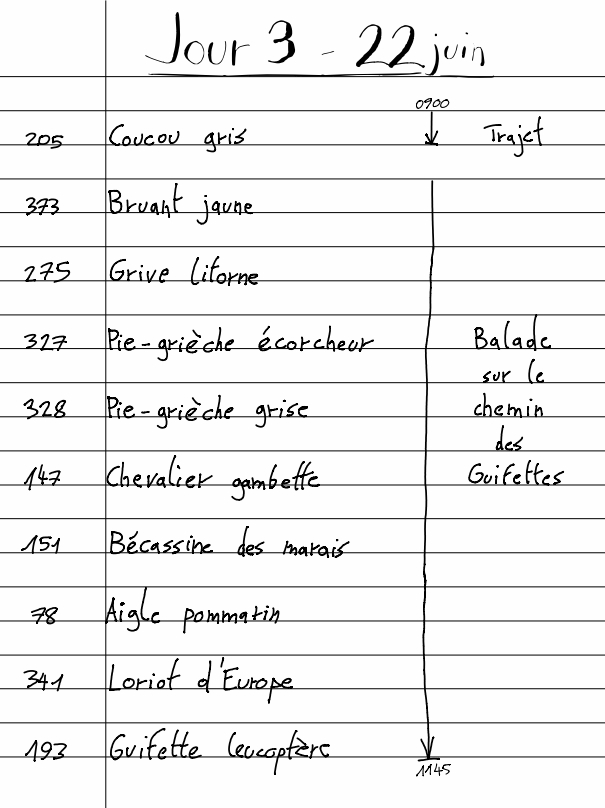 Jour 3 - 22 juin
0900
205 Coucou gris Trajet
373 Bruant jaune
275 Grive litorne
327 Pie-grièche écorcheur Balade
sur le
328 Pie-grièche grise chemin
des
147 Chevalier gambette Guifettes
151 Bécassine des marais
78 Aigle pommarin
341 Loriot d'Europe
193 Guifette leucoptère
1145